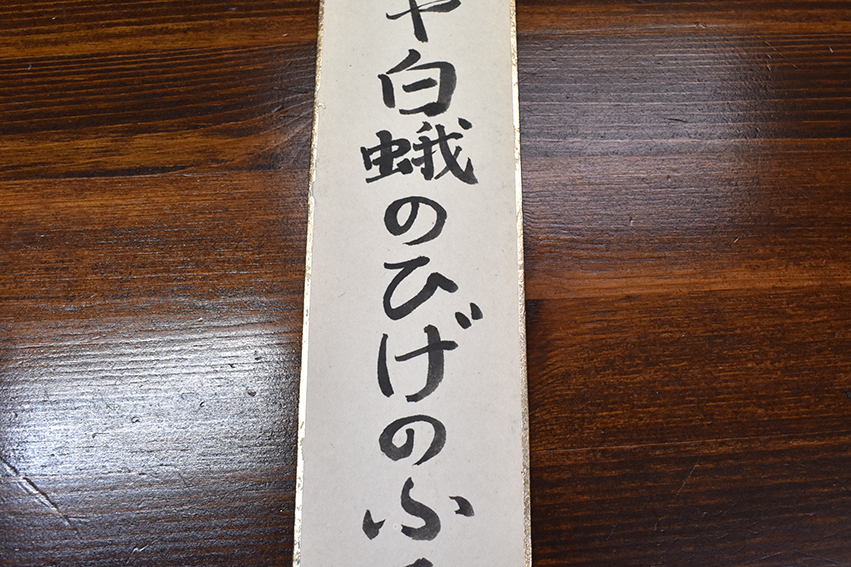 や白蛾のひげのふ